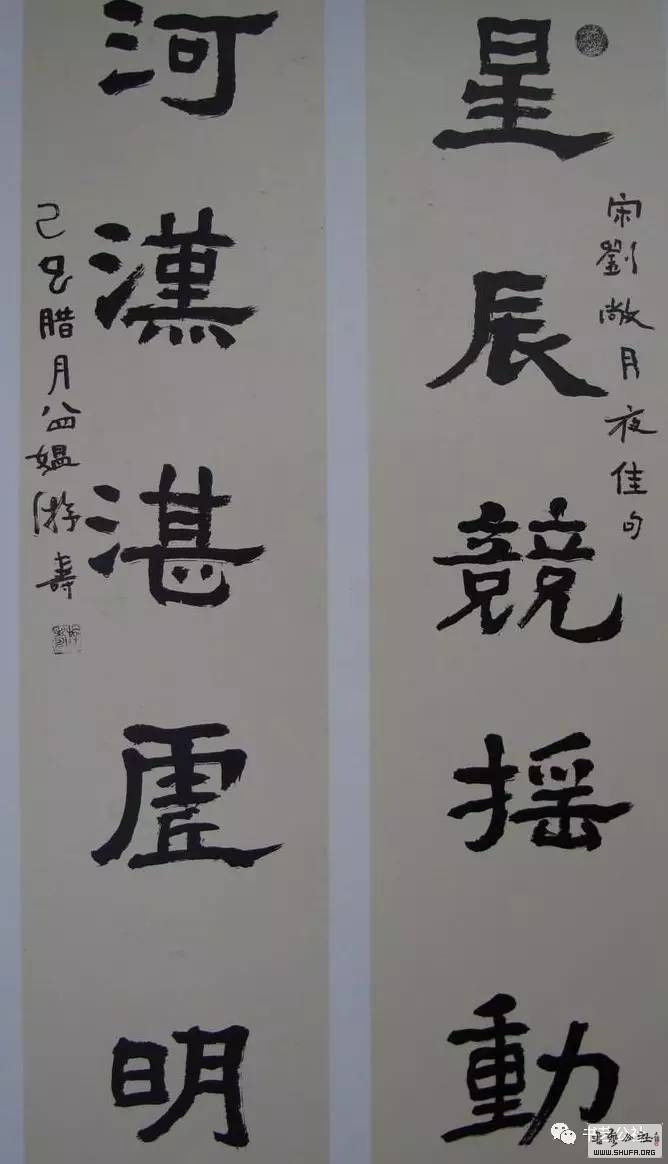 宋劉敞月夜佳句
星辰競摇動
河漢湛虛明
己巳腊月八四媪游壽
书艺公社
WWW.SHUFA.ORG